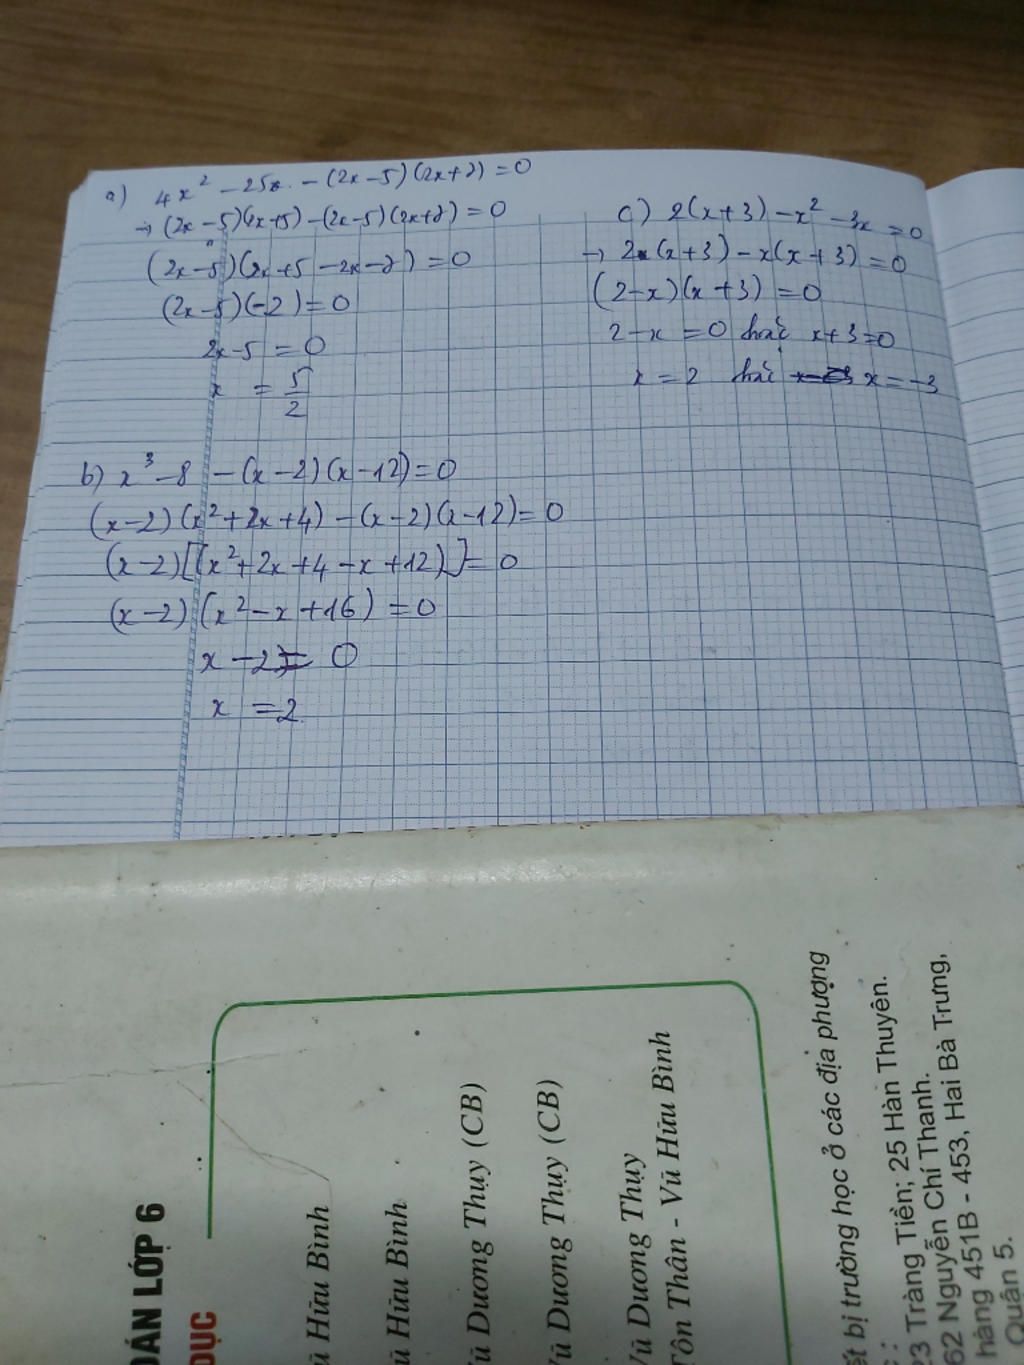 a) 4x² - 25 - (2x-5)(2x+7) = 0
→ (2x-5)(2x+5) - (2x-5)(2x+7) = 0
(2x-5)(2x+5-2x-7) = 0
(2x-5)(-2) = 0
2x-5 = 0
x = 5/2
b) x³ - 8 - (x-2)(x-12) = 0
(x-2)(x²+2x+4) - (x-2)(x-12) = 0
(x-2)[(x²+2x+4-x+12)] = 0
(x-2)(x²-x+16) = 0
x-2 = 0
x = 2
c) 2(x+3) - x² - 3x = 0
→ 2(x+3) - x(x+3) = 0
(2-x)(x+3) = 0
2-x = 0 hoặc x+3=0
x = 2 hoặc x = -3
OÁN LỚP 6
DỤC
ũ Hữu Bình
ũ Hữu Bình
Vũ Dương Thụy (CB)
Vũ Dương Thụy (CB)
Vũ Dương Thụy
Tôn Thân - Vũ Hữu Bình
ết bị trường học ở các địa phương
23 Tràng Tiền; 25 Hàn Thuyên.
62 Nguyễn Chí Thanh.
hàng 451B - 453, Hai Bà Trưng,
Quận 5.